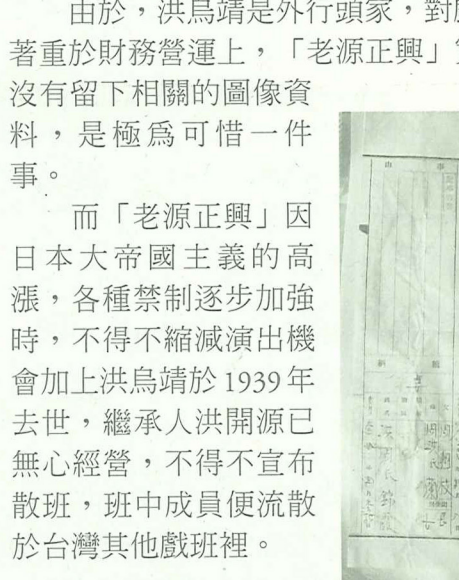 由於，洪烏靖是外行頭家，對
著重於財務營運上，「老源正興」
沒有留下相關的圖像資
料，是極為可惜一件
事。
而「老源正興」因
日本大帝國主義的高
漲，各種禁制逐步加強
時，不得不縮減演出機
會加上洪烏靖於1939年
去世，繼承人洪開源已
無心經營，不得不宣布
散班，班中成員便流散
於台灣其他戲班裡。
由 事